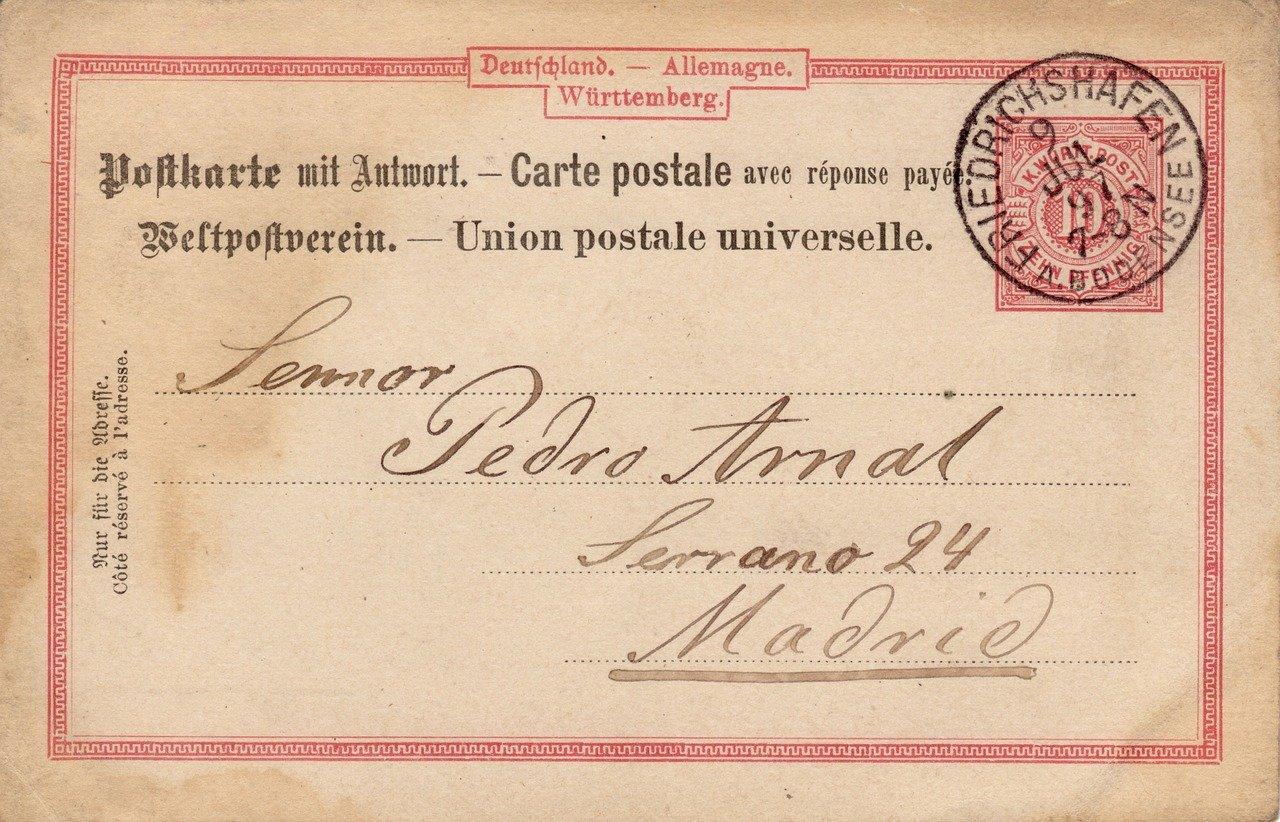 Deutschland. — Allemagne.
Württemberg.
Postkarte mit Antwort. — Carte postale avec réponse payée
Weltpostverein. — Union postale universelle.
FRIEDRICHSHAFEN
A. BODENSEE
9
JUL
97
7-8 N
K. WÜRTT. POST
10
ZEHN PFENNIG
Nur für die Adresse.
Côté réservé à l'adresse.
Sennor
Pedro Arnal
Serrano 24
Madrid